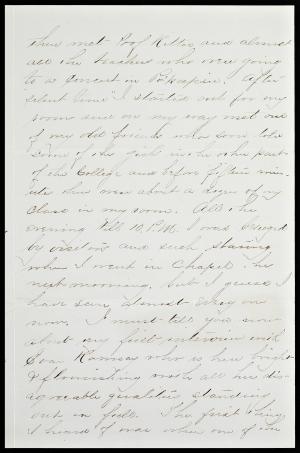 then met Prof Ritter and almost
all the teachers who were going
to a concert in Po'keepsie. After
"silent time" I started out for my
room and on my way met one
of my old friends who soon told
some of the girls in the other part
of the College and before fifteen min-
utes there were about a dozen of my
class in my room. All the
evening till 10, P.M. I was besieged
by visitors and such staring
when I went in Chapel the
next morning, but I guess I
have seen almost every one
now. I must tell you now
about my first interview with
who is here bright
& flourishing with all her dis-
agreeable qualities standing
out in full. The first thing
I heard of was when one of the